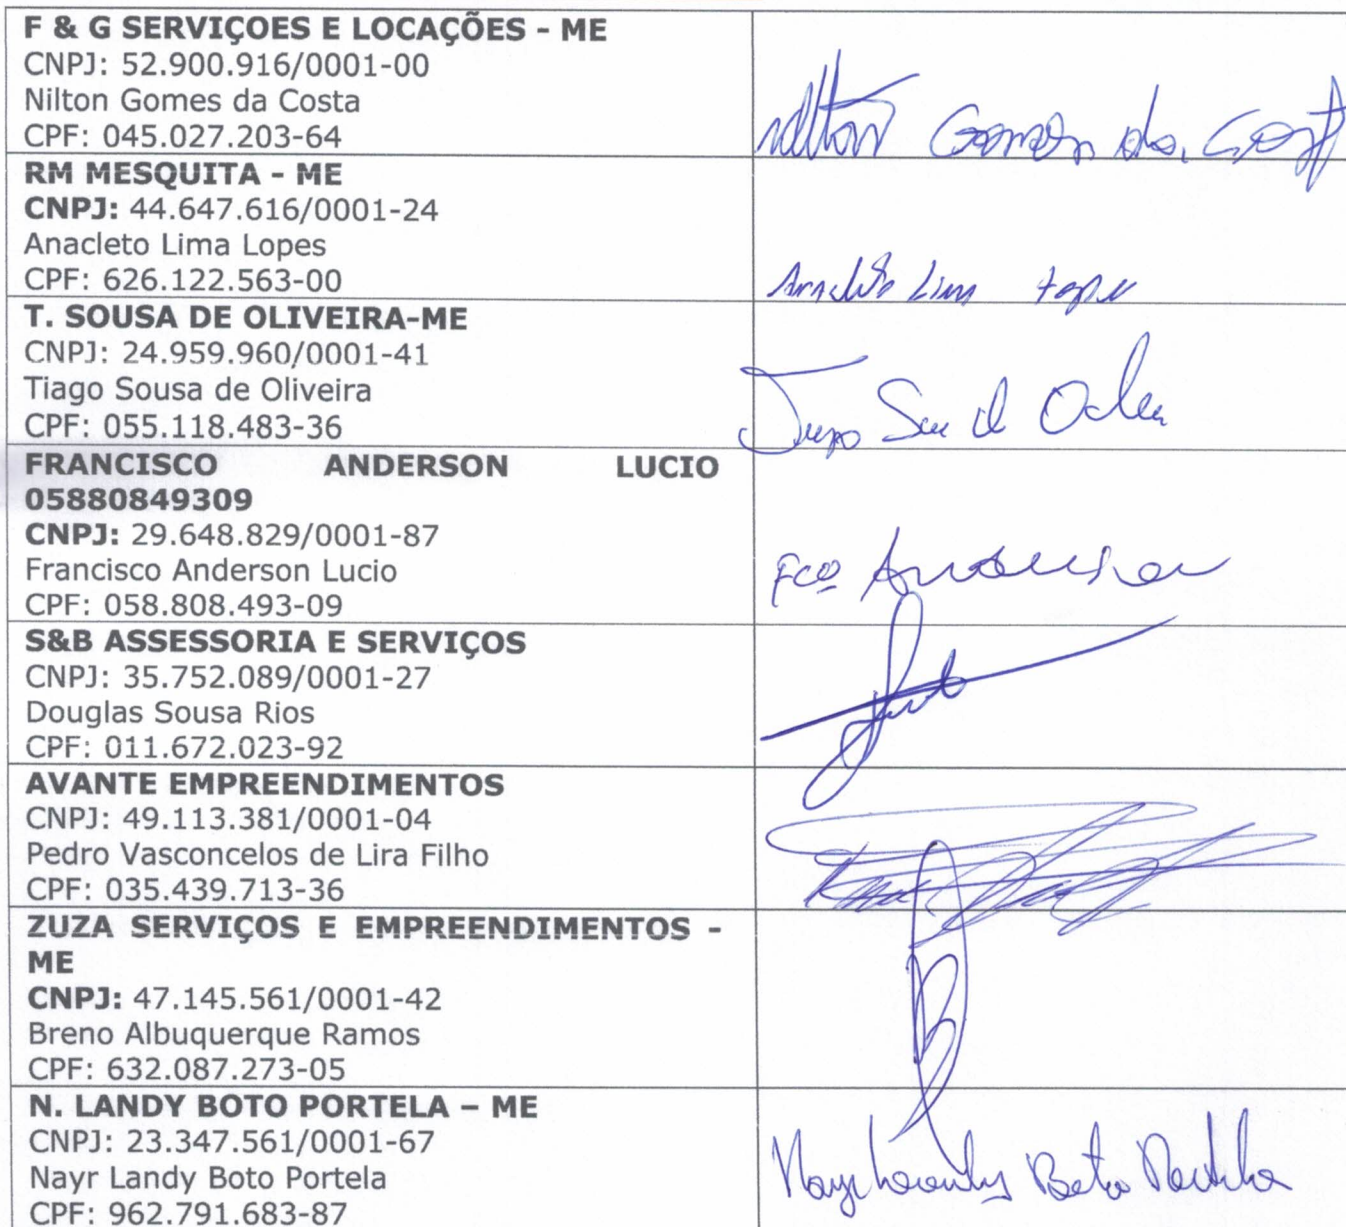 F & G SERVIÇOES E LOCAÇÕES - ME
CNPJ: 52.900.916/0001-00
Nilton Gomes da Costa
CPF: 045.027.203-64
nilton Gomes da Cost
RM MESQUITA - ME
CNPJ: 44.647.616/0001-24
Anacleto Lima Lopes
CPF: 626.122.563-00
Anacleto Lima Lopes
T. SOUSA DE OLIVEIRA-ME
CNPJ: 24.959.960/0001-41
Tiago Sousa de Oliveira
CPF: 055.118.483-36
FRANCISCO ANDERSON LUCIO
05880849309
CNPJ: 29.648.829/0001-87
Francisco Anderson Lucio
CPF: 058.808.493-09
Fco Anderson
S&B ASSESSORIA E SERVIÇOS
CNPJ: 35.752.089/0001-27
Douglas Sousa Rios
CPF: 011.672.023-92
AVANTE EMPREENDIMENTOS
CNPJ: 49.113.381/0001-04
Pedro Vasconcelos de Lira Filho
CPF: 035.439.713-36
ZUZA SERVIÇOS E EMPREENDIMENTOS -
ME
CNPJ: 47.145.561/0001-42
Breno Albuquerque Ramos
CPF: 632.087.273-05
N. LANDY BOTO PORTELA – ME
CNPJ: 23.347.561/0001-67
Nayr Landy Boto Portela
CPF: 962.791.683-87
Nayr Landy Boto Portela